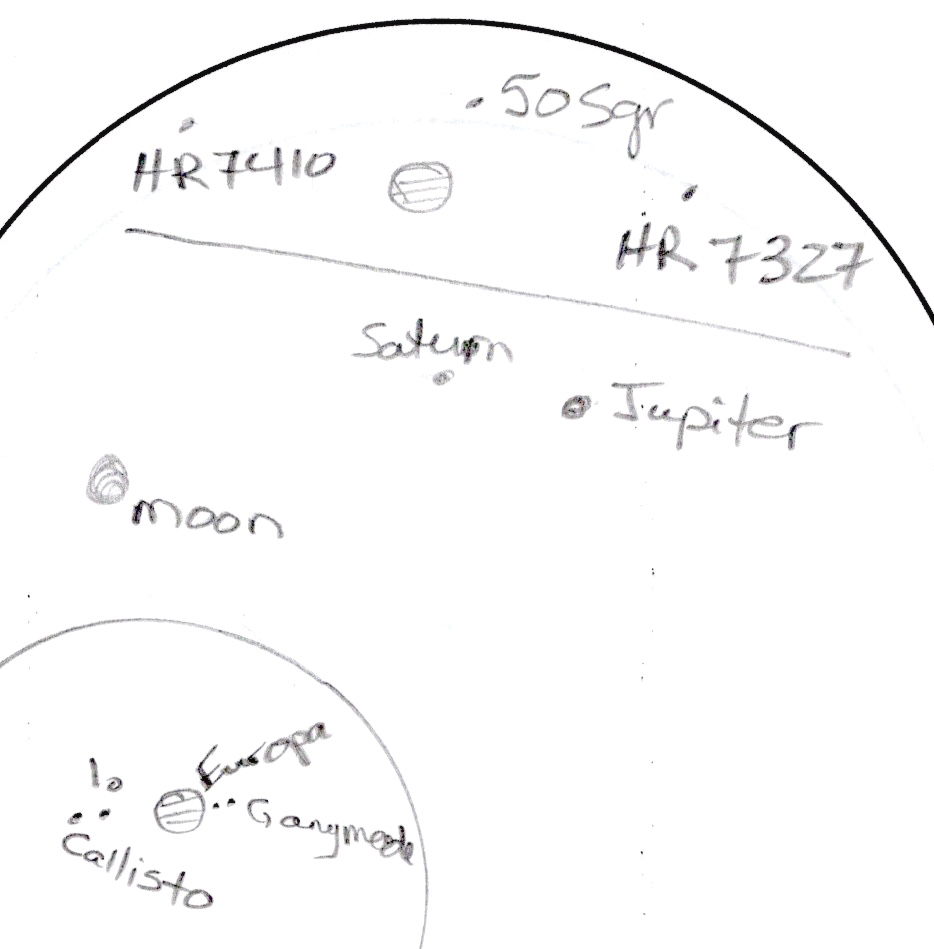 50 Sgr
HR 7410
HR 7327
Saturn
Jupiter
moon
Europa
Io
Ganymede
Callisto